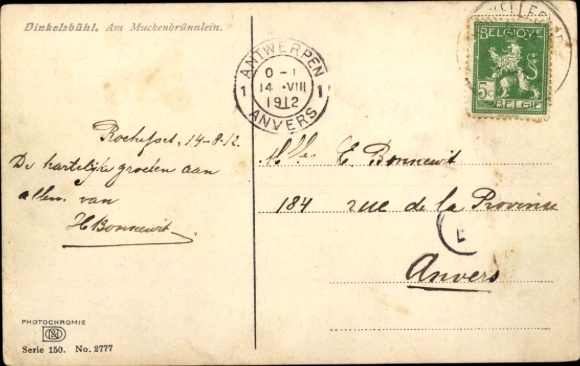 Dinkelsbühl. Am Muckenbrünnlein.
ANTWERPEN
0-1
1 14 VIII 1
1912
ANVERS
BELGIQUE
5
BELGIË
Rochefort, 14-8-12.
De hartelijke groeten aan
allen van
H Bonnewit
Mlle E. Bonnewit
184 rue de la Province
E
Anvers
PHOTOCHROMIE
Serie 150. No. 2777